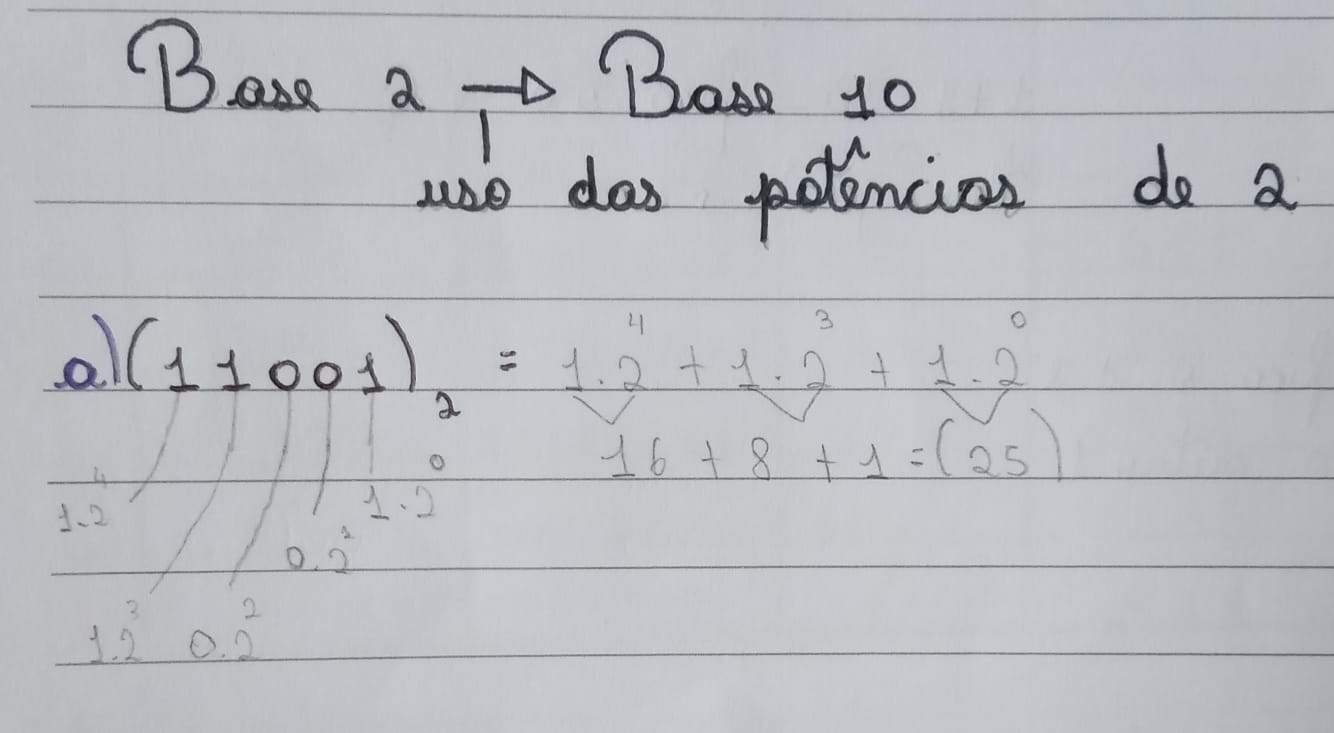 Base 2 → Base 10
uso das potências de 2
a) (11001)₂ = 1.2⁴ + 1.2³ + 1.2⁰
16 + 8 + 1 = (25)
1.2⁴ 1.2³ 0.2² 0.2¹ 1.2⁰